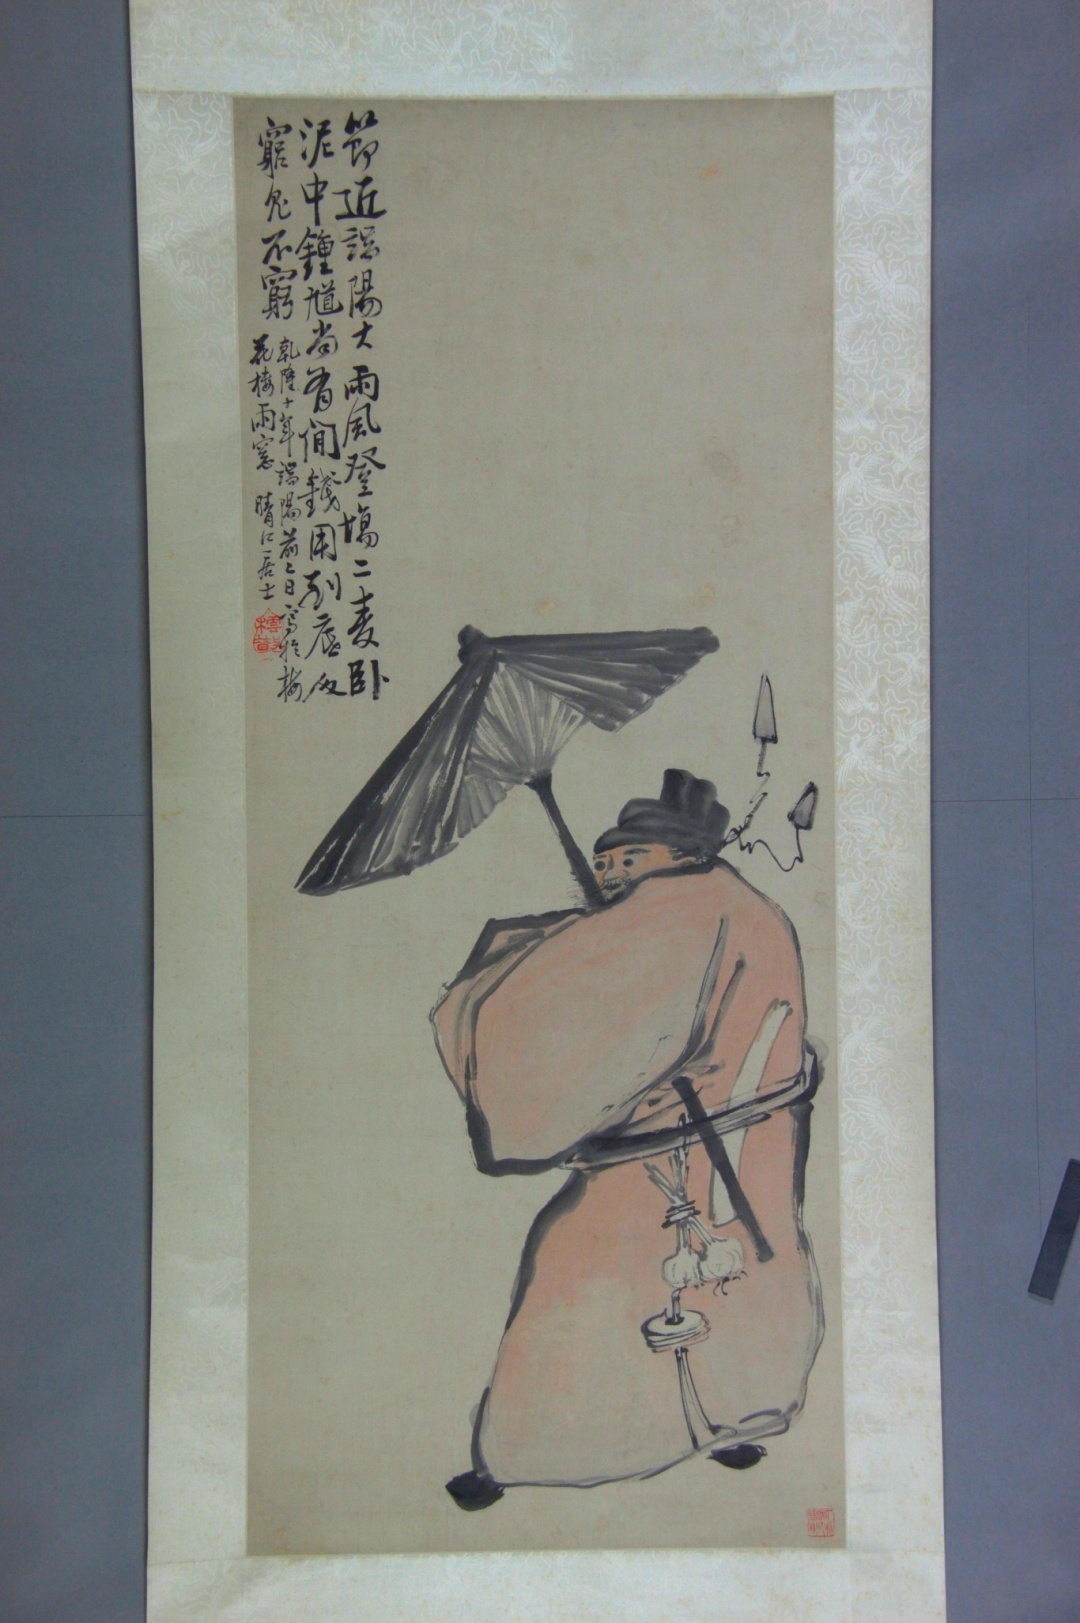 節近端陽大雨風登場二麥卧
泥中鍾馗尚有閒錢用到底
窮鬼不窮
乾隆十年端陽前二日寫於梅
花樓雨窓 晴江居士